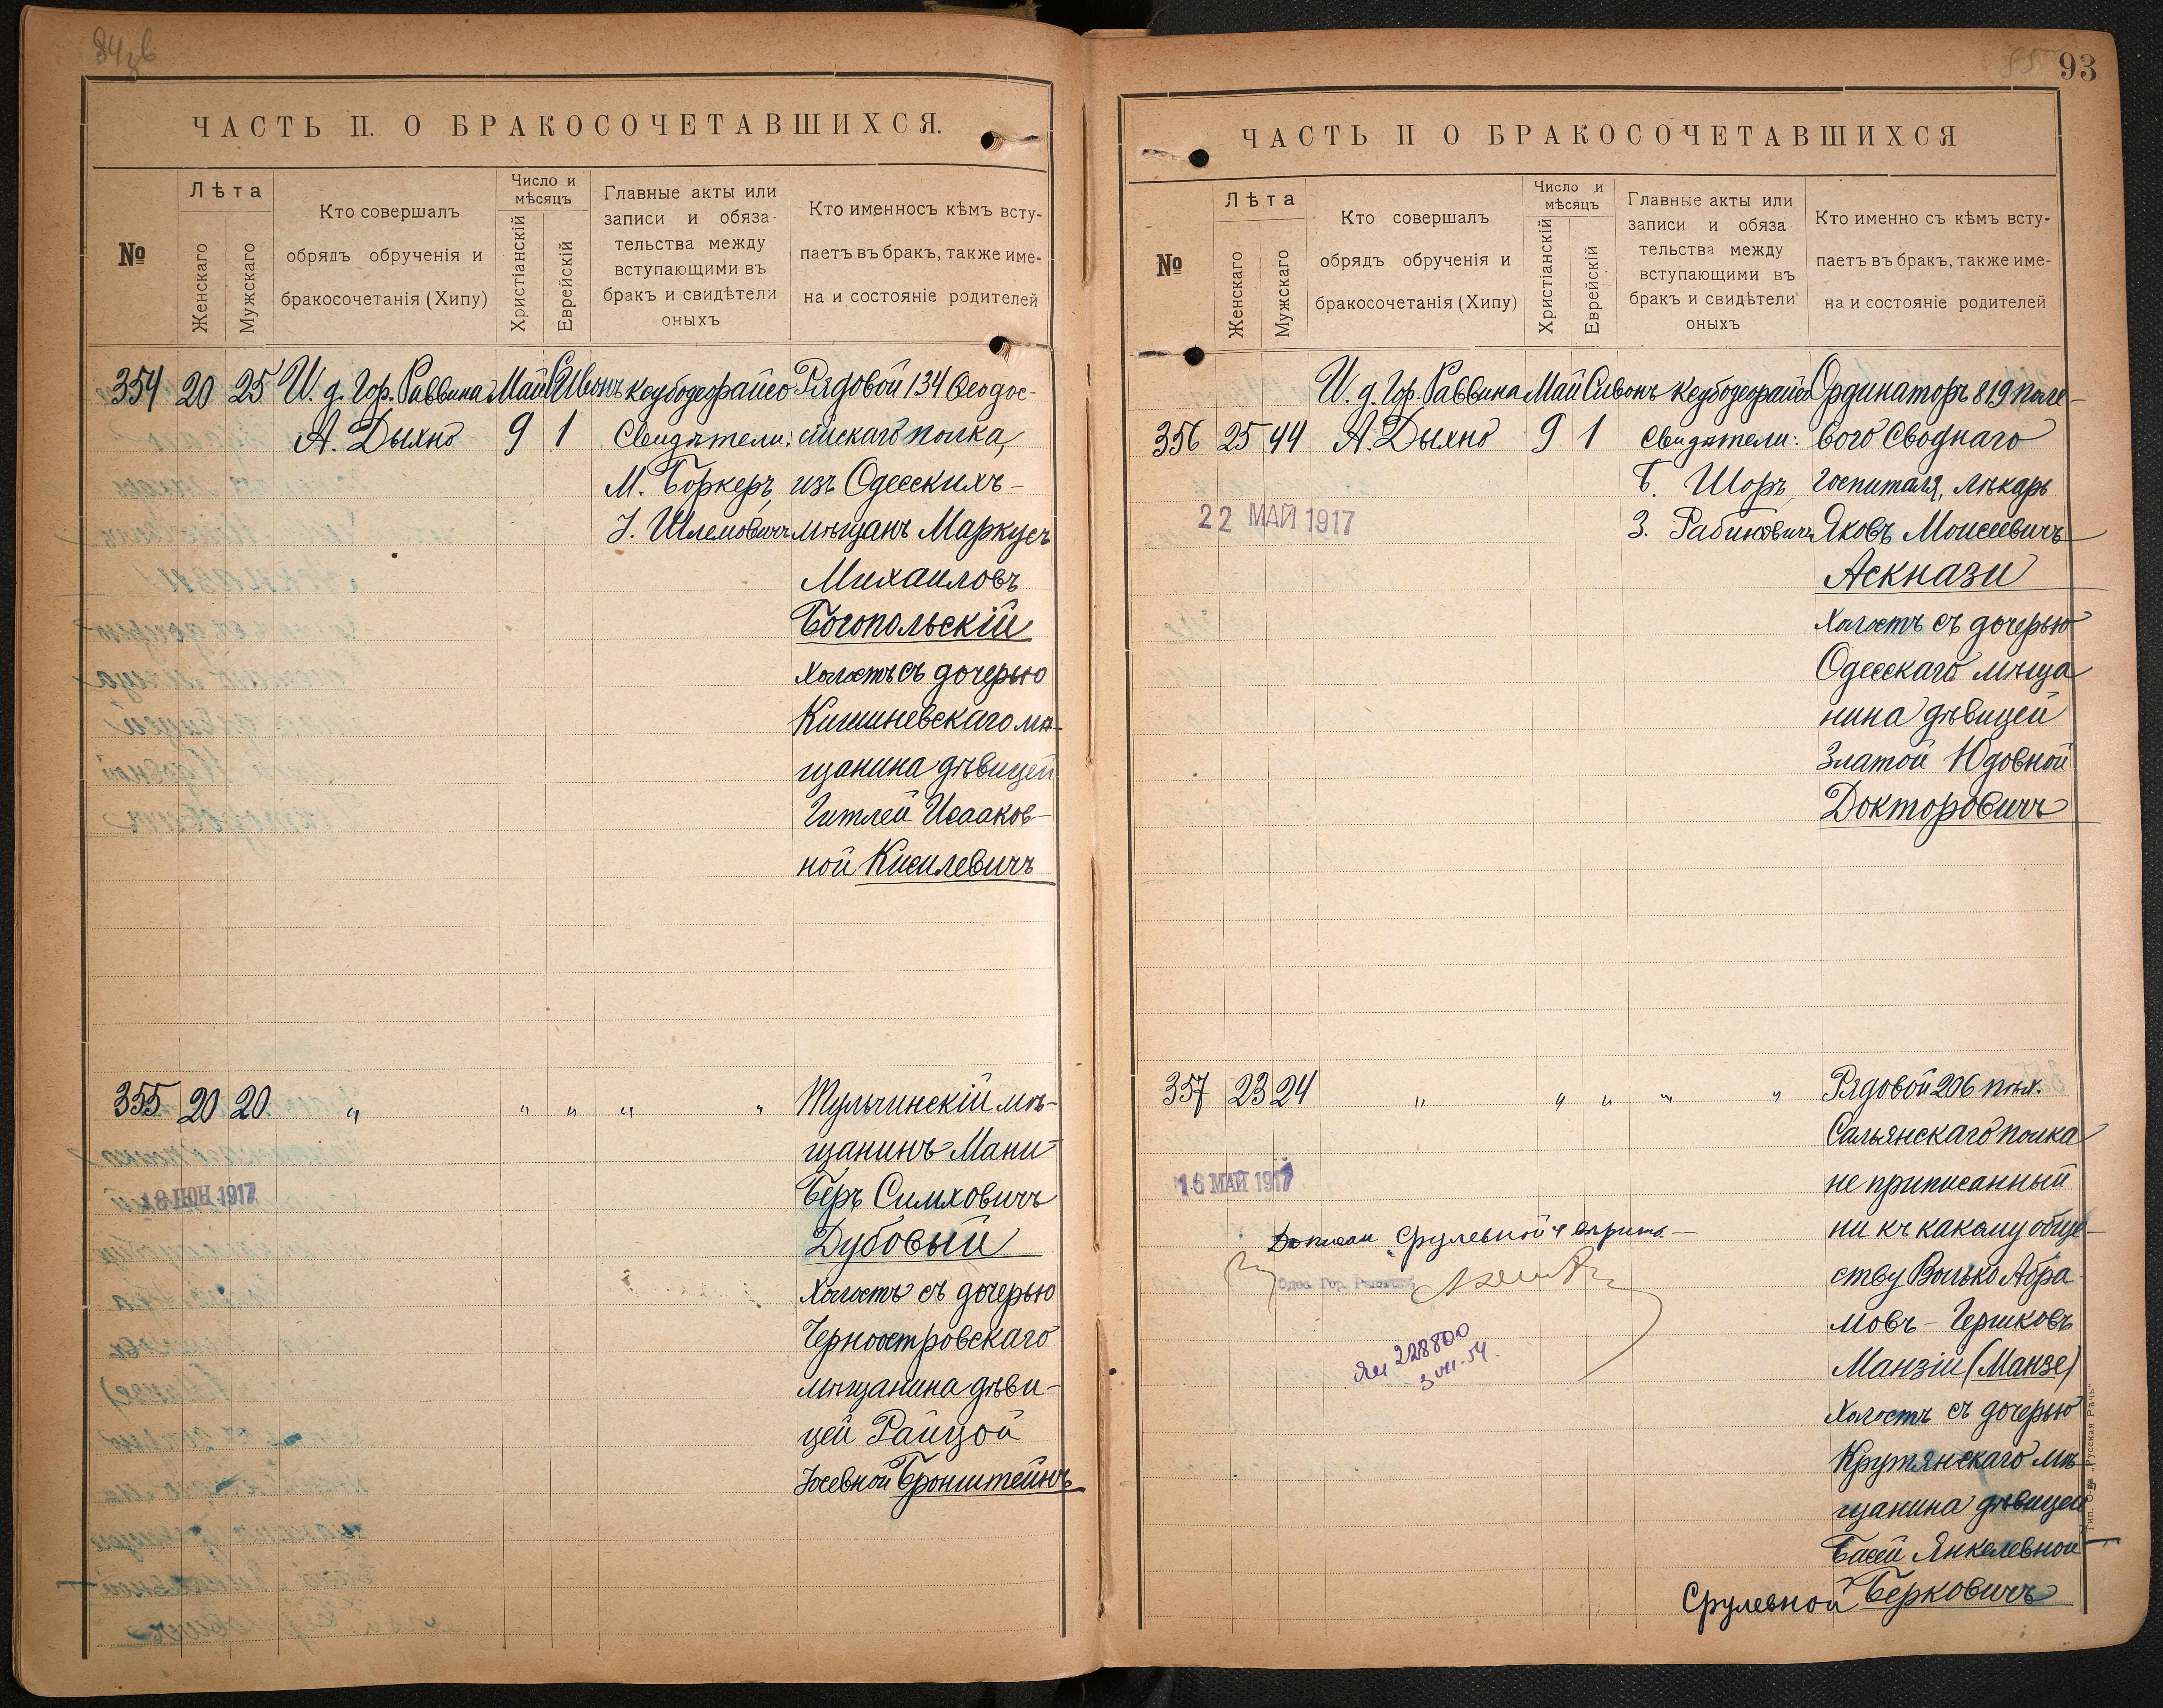 ЧАСТЬ II. О БРАКОСОЧЕТАВШИХСЯ.
№
Лѣта
Женскаго
Мужскаго
Кто совершалъ
обрядъ обрученія и
бракосочетанія (Хипу)
Число и
мѣсяцъ
Христіанскій
Еврейскій
Главные акты или
записи и обяза-
тельства между
вступающими въ
бракъ и свидѣтели
оныхъ
Кто именносъ кѣмъ всту-
паетъ въ бракъ, также име-
на и состояніе родителей
354 20 25 И. д. Гор. Раввина Май Сивонъ Кедубодеорайсо Рядовой 134 Ѳеодос-
А. Дыхно 9 1 Свидѣтели: сійскаго полка,
М. Боркеръ, изъ Одесскихъ
І. Шлемовичъ мѣщанъ Маркусъ
Михаиловъ
Богопольскій
холостъ съ дочерью
Кишиневскаго мѣ-
щанина дѣвицей
Гитлей Исааков-
ной Кисилевичъ
355 20 20 " " " " " Тульчинскій мѣ-
щанинъ Мани-
Беръ Симховичъ
18 ІЮН 1917
Дубовый
холостъ съ дочерью
Черноостровскаго
мѣщанина дѣви-
цей Райцой
Іосевной Бронштейнъ
93
ЧАСТЬ II О БРАКОСОЧЕТАВШИХСЯ
№
Лѣта
Женскаго
Мужскаго
Кто совершалъ
обрядъ обрученія и
бракосочетанія (Хипу)
Число и
мѣсяцъ
Христіанскій
Еврейскій
Главные акты или
записи и обяза
тельства между
вступающими въ
бракъ и свидѣтели
оныхъ
Кто именно съ кѣмъ всту-
паетъ въ бракъ, также име-
на и состояніе родителей
И. д. Гор. Раввина Май Сивонъ Кедубодеорайсо Ординаторъ 819 поле-
356 25 44 А. Дыхно 9 1 Свидѣтели: вого Своднаго
Б. Шоръ, госпиталя, лѣкарь
22 МАЙ 1917
З. Рабиновичъ Яковъ Моисеевичъ
Аскнази
холостъ съ дочерью
Одесскаго мѣща
нина дѣвицей
Златой Юдовной
Докторовичъ
357 23 24 " " " " " Рядовой 206 пѣх.
Сальянскаго полка
16 МАЙ 1917
не приписанный
ни къ какому обще-
Срулевной
ству Волько Абра
Одес. Гор.
мовъ-Гершковъ
228800
3 VII-54.
Манзій (Манзе)
холостъ съ дочерью
Крутянскаго мѣ-
щанина дѣвицей
Басей Янкелевной
Срулевной Берковичъ
Тип. О-ва „Русская Рѣчь“